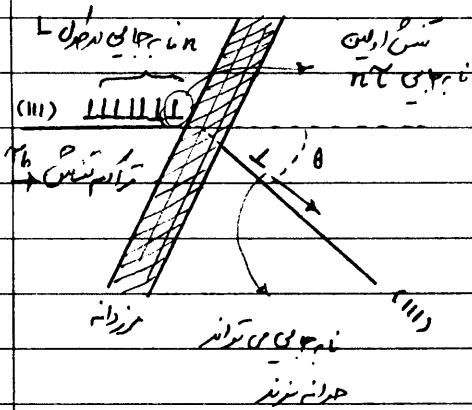 n نابه‌جایی در طول L
تنش اولین
نابه‌جایی nτ
(111)
τb
تراکم تنش
θ
(111)
مرزدانه
نابه‌جایی می تواند
جوانه بزند